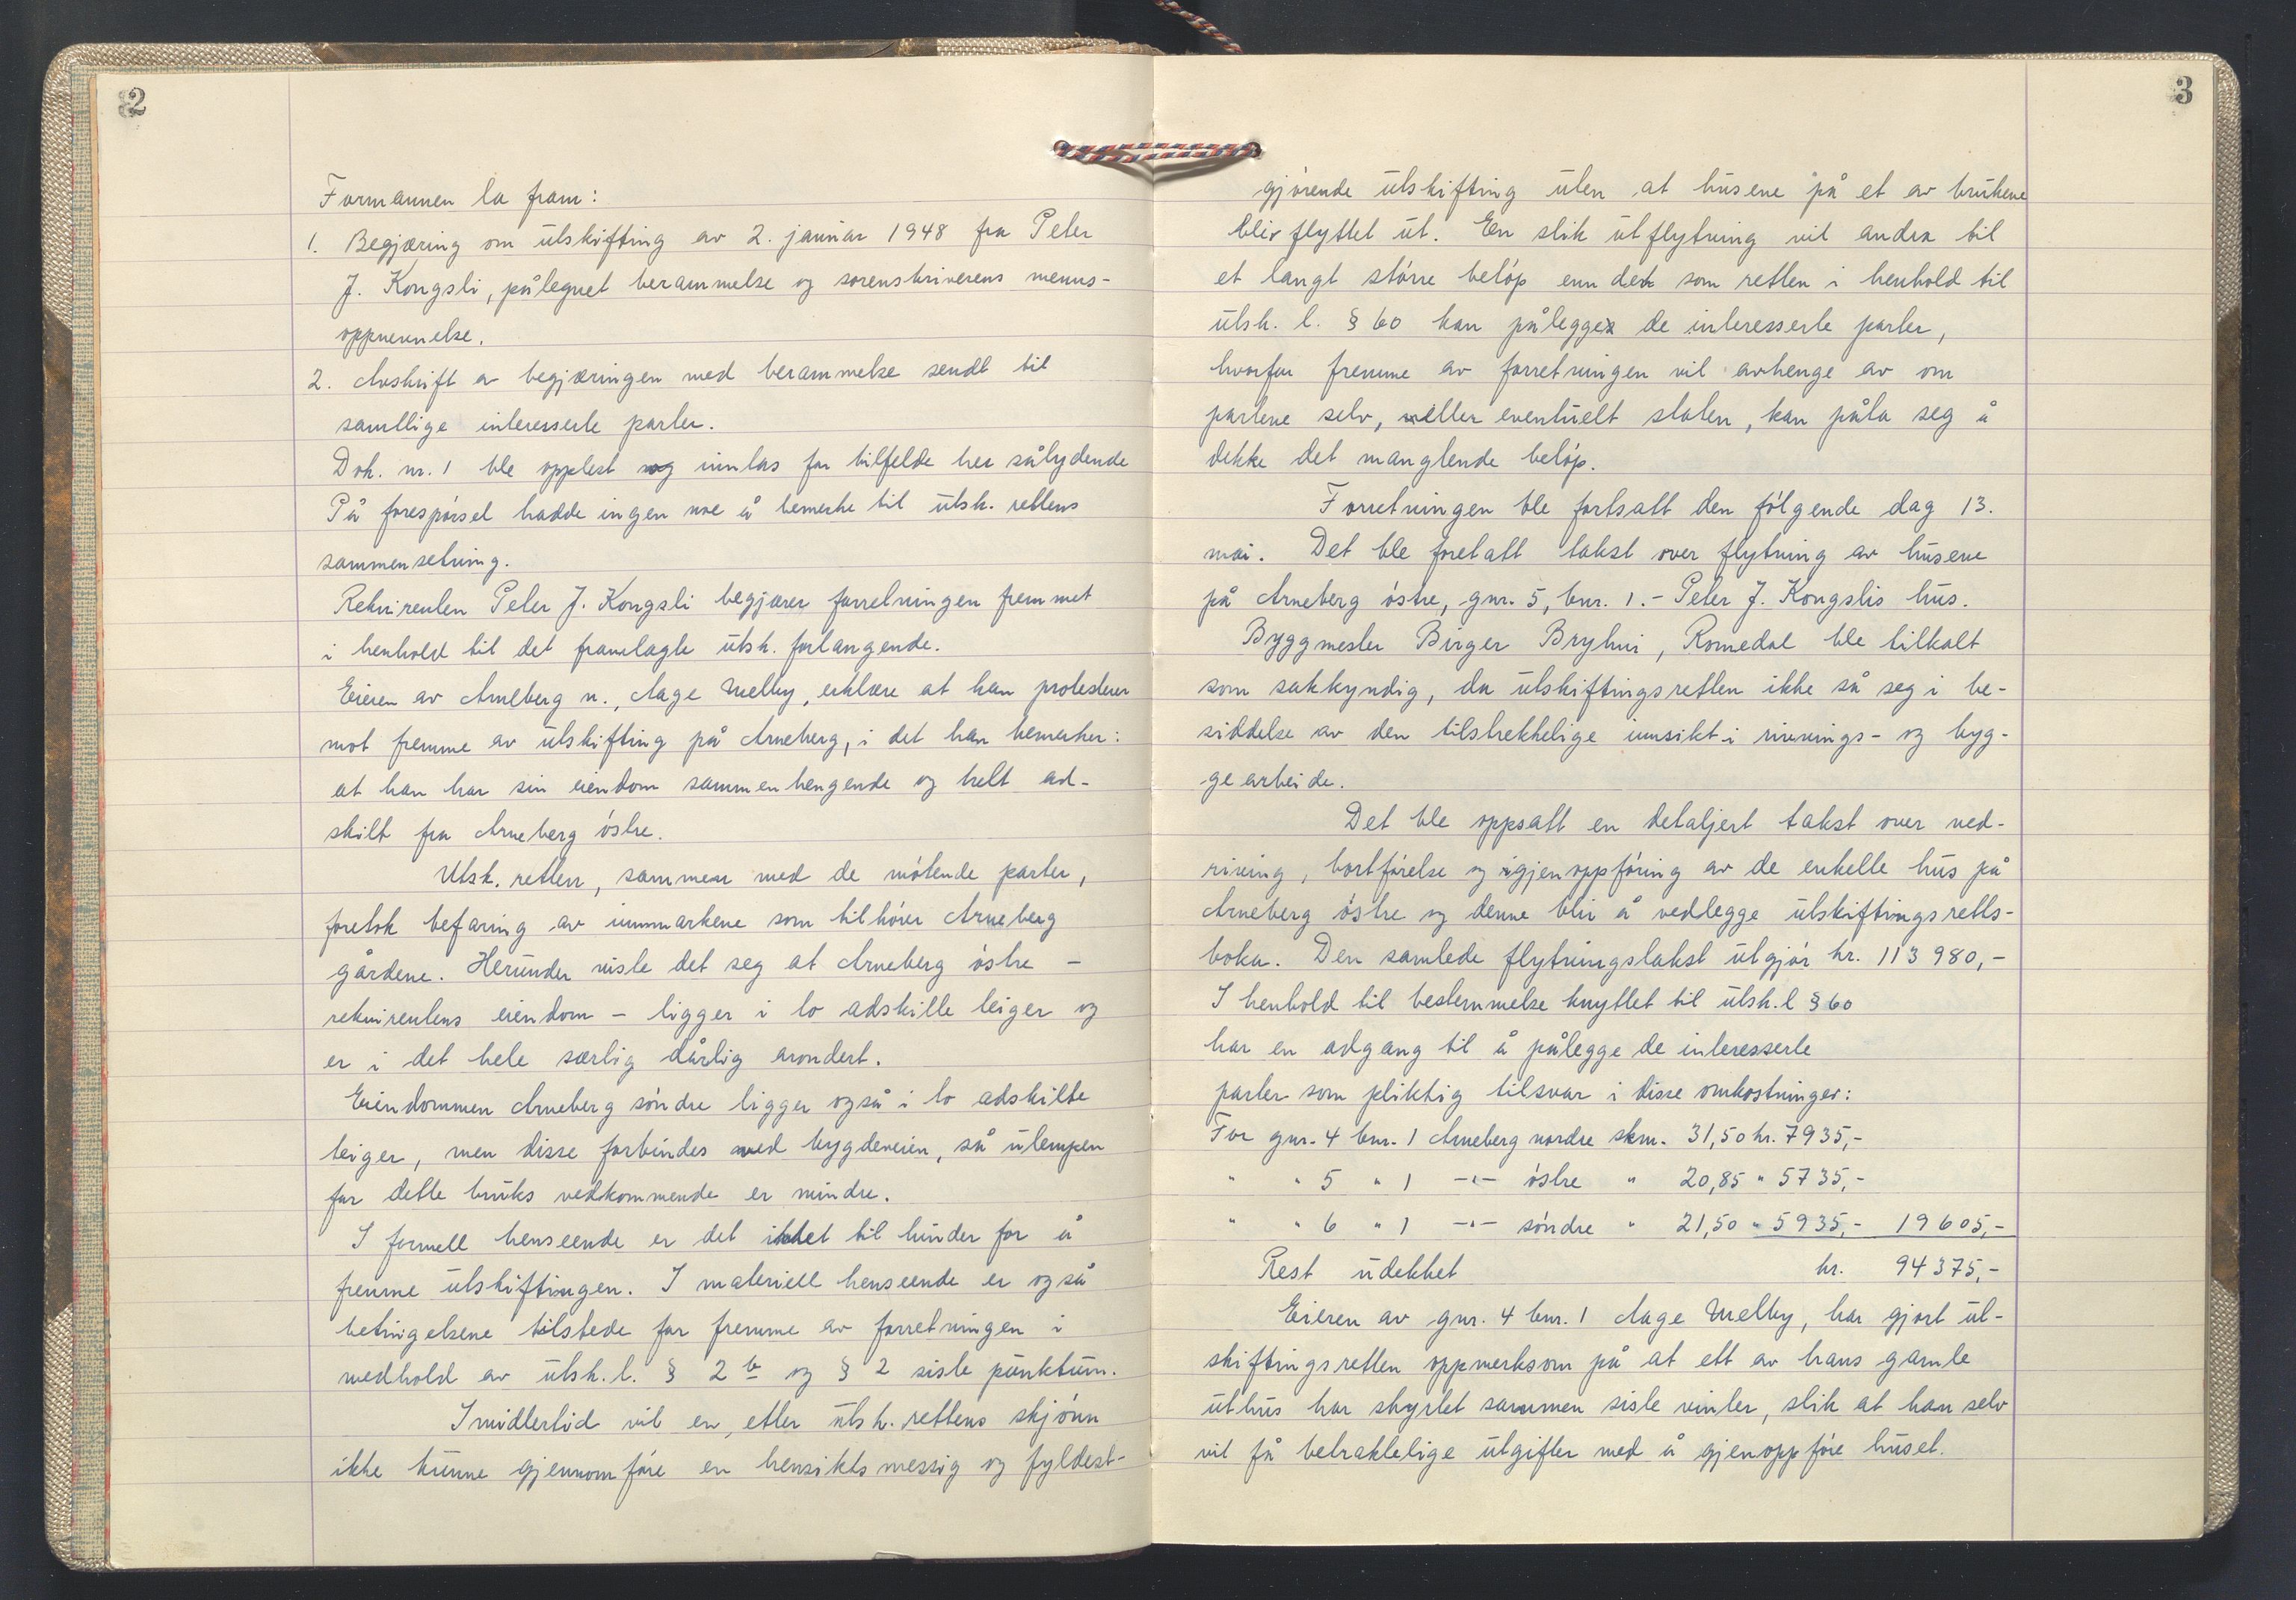 2
Formannen la fram:
1. Begjæring om utskifting av 2. januar 1948 fra Peter
J. Kongsli, påtegnet berammelse og sorenskriverens menns-
oppnevnelse.
2. Avskrift av begjæringen med berammelse sendt til
samtlige interesserte parter.
Dok. nr. 1 ble opplest og innlas for tilfelde her sålydende
På forespørsel hadde ingen noe å bemerke til utsk. rettens
sammensetning.
Rekvirenten Peter J. Kongsli begjærer forretningen fremmet
i henhold til det framlagte utsk. forlangende.
Eieren av Arneberg n., Aage Melby, erklære at han protesterer
mot fremme av utskifting på Arneberg, i det han bemerker:
at han har sin eiendom sammenhengende og helt ad-
skilt fra Arneberg østre.
Utsk. retten, sammen med de møtende parter,
foretok befaring av innmarkene som tilhører Arneberg
gårdene. Herunder viste det seg at Arneberg østre -
rekvirentens eiendom - ligger i to adskilte teiger og
er i det hele særlig dårlig arondert.
Eiendommen Arneberg søndre ligger også i to adskilte
teiger, men disse forbindes med bygdeveien, så ulempen
for dette bruks vedkommende er mindre.
I formell henseende er det intet til hinder for å
fremme utskiftingen. I materiell henseende er også
betingelsene tilstede for fremme av forretningen i
medhold av utsk. l. § 2 b og § 2 siste punktum.
Imidlertid vil en, etter utsk. rettens skjønn
ikke kunne gjennomføre en hensiktsmessig og fyldest-
3
gjørende utskifting uten at husene på et av brukene
blir flyttet ut. En slik utflytning vil andra til
et langt større beløp enn det som retten i henhold til
utsk. l. § 60 kan pålegge de interesserte parter,
hvorfor fremme av forretningen vil avhenge av om
partene selv, eller eventuelt staten, kan påta seg å
dekke det manglende beløp.
Forretningen ble fortsatt den følgende dag 13.
mai. Det ble foretatt takst over flytning av husene
på Arneberg østre, gnr. 5, bnr. 1. - Peter J. Kongslis hus.
Byggmester Birger Bryhni, Romedal ble tilkalt
som sakkyndig, da utskiftingsretten ikke så seg i be-
siddelse av den tilstrekkelige innsikt i rivnings- og byg-
gearbeide.
Det ble oppsatt en detaljert takst over ned-
riving, bortførelse og igjenoppføring av de enkelte hus på
Arneberg østre og denne blir å vedlegge utskiftingsretts-
boka. Den samlede flytningstakst utgjør kr. 113 980,-
I henhold til bestemmelse knyttet til utsk. l § 60
har en adgang til å pålegge de interesserte
parter som pliktig tilsvar i disse omkostninger:
For gnr. 4 bnr. 1 Arneberg nordre skm. 31,50 kr. 7935,-
" " 5 " 1 -"- østre " 20,85 " 5735,-
" " 6 " 1 -"- søndre " 21,50 " 5935,- 19605,-
Rest udekket kr. 94375,-
Eieren av gnr. 4 bnr. 1 Aage Melby, har gjort ut-
skiftingsretten oppmerksom på at ett av hans gamle
uthus har styrtet sammen siste vinter, slik at han selv
vil få betraktelige utgifter med å gjenoppføre huset.